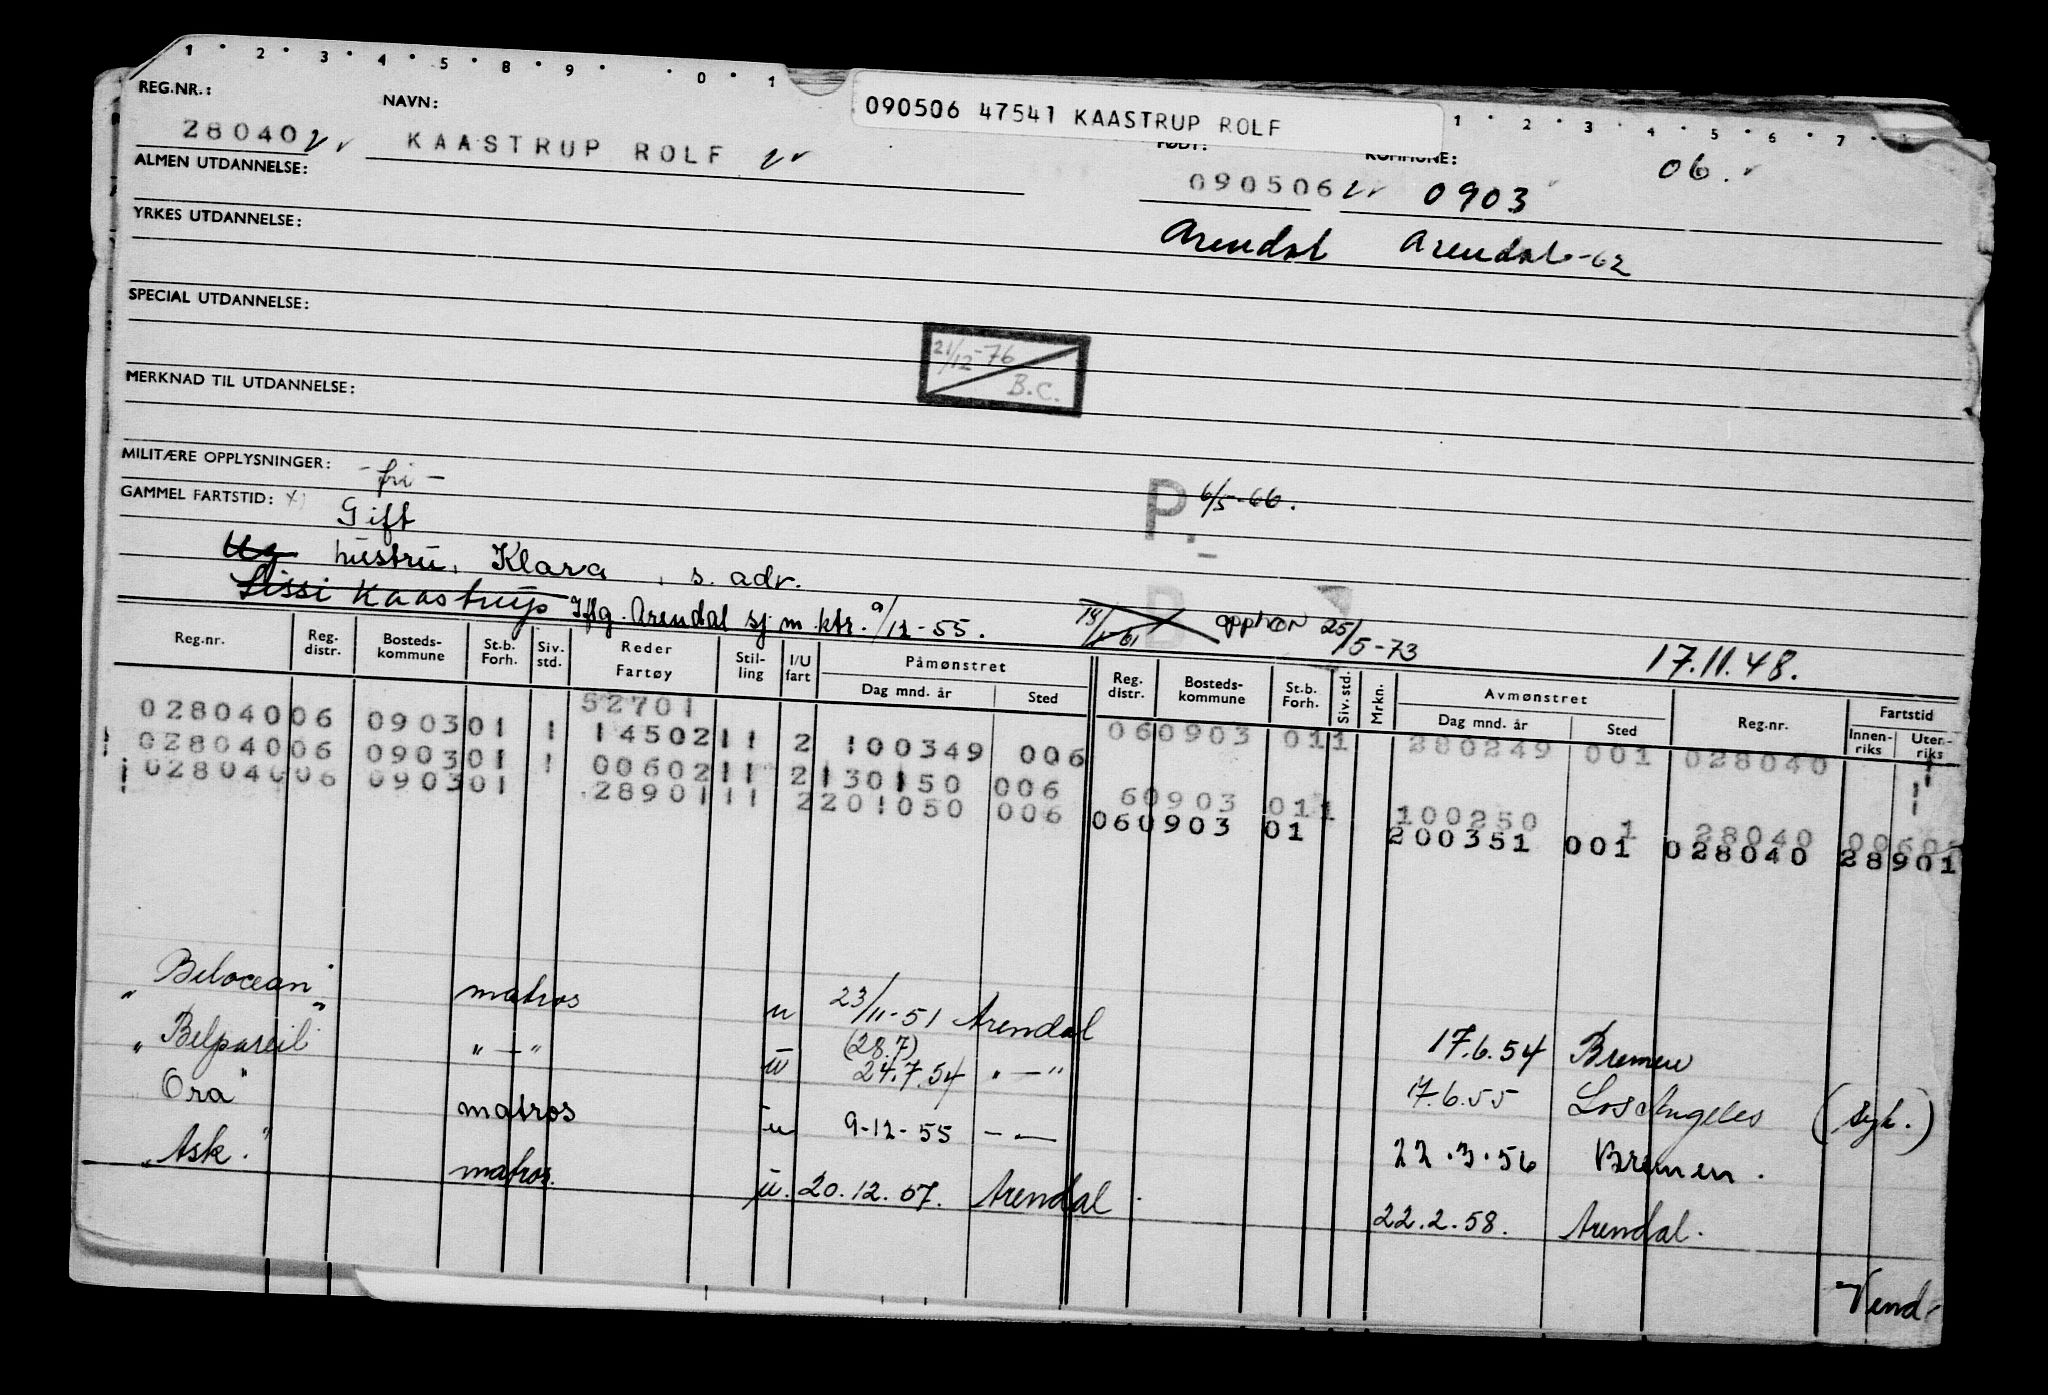 1 · 2 · 3 · 4 · 5 · 8 · 9 · · 0 · 1
1 · 2 · 3 · 4 · 5 · 6 · 7 ·
090506 47541 KAASTRUP ROLF
REG.NR.: NAVN: FØDT: KOMMUNE:
28040 KAASTRUP ROLF 090506 0903 06.
ALMEN UTDANNELSE:
Arendal Arendal-62
YRKES UTDANNELSE:
SPECIAL UTDANNELSE:
21/12-76
B.C.
MERKNAD TIL UTDANNELSE:
MILITÆRE OPPLYSNINGER: - fri -
P. 6/5-66.
GAMMEL FARTSTID: x)
Gift
Ug hustru, Klara, s. adr.
Sissi Kaastrup Iflg. Arendal sj.m.ktr. 9/12-55.
B 19/1-61 opphør 25/5-73 17.11.48.
Reg.nr. Reg. distr. Bosteds-kommune St.b. Forh. Siv. std. Reder Fartøy Stil-ling I/U fart Påmønstret Dag mnd. år Sted Reg. distr. Bosteds-kommune St.b. Forh. Siv. std. Mrkn. Avmønstret Dag mnd. år Sted Reg.nr. Fartstid Innen-riks Uten-riks
52701 060903 011 280249 001 028040
028040 06 0903 01 1 14502 11 2 100349 006
028040 06 0903 01 1 00602 11 2 130150 006 60903 011 100250 1 28040 00602
028040 06 0903 01 28901 11 2 201050 006 060903 01 200351 001 028040 28901
"Belocean" matros u 23/11-51 Arendal 17.6.54 Bremen
"Belpareil" "—" u (28.7) 24.7.54 "—" 17.6.55 Los Angeles (syk.)
"Ora" matros u 9-12-55 — — 22.3.56 Bremen.
"Ask." matros. u. 20.12.57. Arendal. 22.2.58. Arendal.
Vend